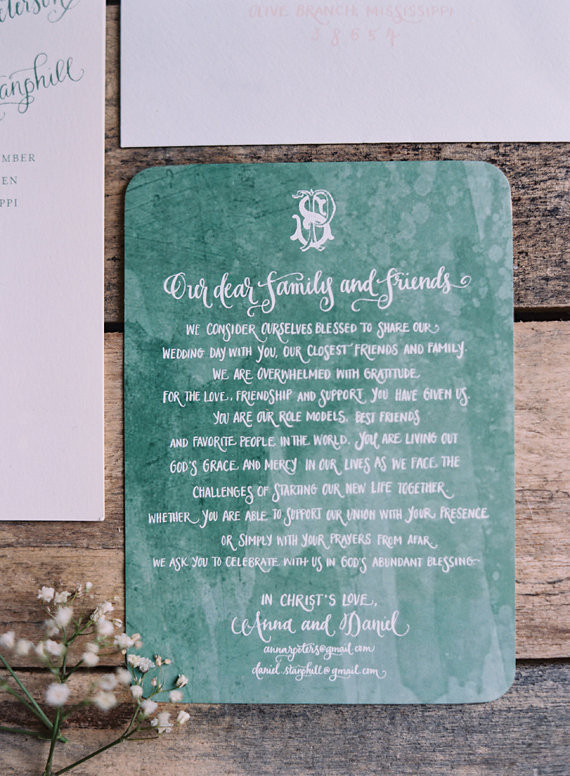 OLIVE BRANCH, MISSISSIPPI
38654
tanphill
MBER
EN
PPI
Our dear family and friends
WE CONSIDER OURSELVES BLESSED TO SHARE OUR
WEDDING DAY WITH YOU, OUR CLOSEST FRIENDS AND FAMILY.
WE ARE OVERWHELMED WITH GRATITUDE
FOR THE LOVE, FRIENDSHIP AND SUPPORT YOU HAVE GIVEN US.
YOU ARE OUR ROLE MODELS, BEST FRIENDS
AND FAVORITE PEOPLE IN THE WORLD. YOU ARE LIVING OUT
GOD'S GRACE AND MERCY IN OUR LIVES AS WE FACE THE
CHALLENGES OF STARTING OUR NEW LIFE TOGETHER.
WHETHER YOU ARE ABLE TO SUPPORT OUR UNION WITH YOUR PRESENCE
OR SIMPLY WITH YOUR PRAYERS FROM AFAR
WE ASK YOU TO CELEBRATE WITH US IN GOD'S ABUNDANT BLESSING.
IN CHRIST'S LOVE,
Anna and Daniel
daniel.stanphill@gmail.com